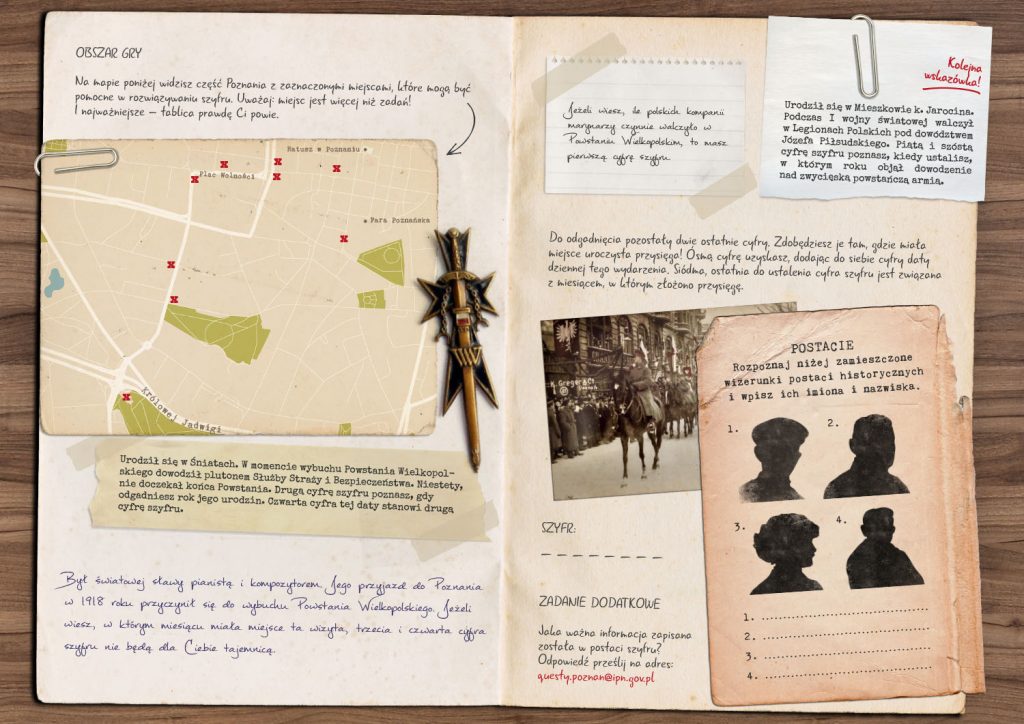 OBSZAR GRY
Na mapie poniżej widzisz część Poznania z zaznaczonymi miejscami, które mogą być
pomocne w rozwiązywaniu szyfru. Uważaj: miejsc jest więcej niż zadań!
I najważniejsze – tablica prawdę Ci powie.
Ratusz w Poznaniu
Plac Wolności
Fara Poznańska
Królowej Jadwigi
Urodził się w Śniatach. W momencie wybuchu Powstania Wielkopol-
skiego dowodził plutonem Służby Straży i Bezpieczeństwa. Niestety,
nie doczekał końca Powstania. Drugą cyfrę szyfru poznasz, gdy
odgadniesz rok jego urodzin. Czwarta cyfra tej daty stanowi drugą
cyfrę szyfru.
Był światowej sławy pianistą i kompozytorem. Jego przyjazd do Poznania
w 1918 roku przyczynił się do wybuchu Powstania Wielkopolskiego. Jeżeli
wiesz, w którym miesiącu miała miejsce ta wizyta, trzecia i czwarta cyfra
szyfru nie będą dla Ciebie tajemnicą.
Jeżeli wiesz, ile polskich kompanii
marynarzy czynnie walczyło w
Powstaniu Wielkopolskim, to masz
pierwszą cyfrę szyfru.
Kolejna
wskazówka!
Urodził się w Mieszkowie k. Jarocina.
Podczas I wojny światowej walczył
w Legionach Polskich pod dowództwem
Józefa Piłsudskiego. Piątą i szóstą
cyfrę szyfru poznasz, kiedy ustalisz,
w którym roku objął dowodzenie
nad zwycięską powstańczą armią.
Do odgadnięcia pozostały dwie ostatnie cyfry. Zdobędziesz je tam, gdzie miała
miejsce uroczysta przysięga! Ósmą cyfrę uzyskasz, dodając do siebie cyfry daty
dziennej tego wydarzenia. Siódma, ostatnia do ustalenia cyfra szyfru jest związana
z miesiącem, w którym złożono przysięgę.
K. Greger & Co
POSTACIE
Rozpoznaj niżej zamieszczone
wizerunki postaci historycznych
i wpisz ich imiona i nazwiska.
1.
2.
3.
4.
1.
2.
3.
4.
SZYFR:
ZADANIE DODATKOWE
Jaka ważna informacja zapisana
została w postaci szyfru?
Odpowiedź prześlij na adres:
questy.poznan@ipn.gov.pl